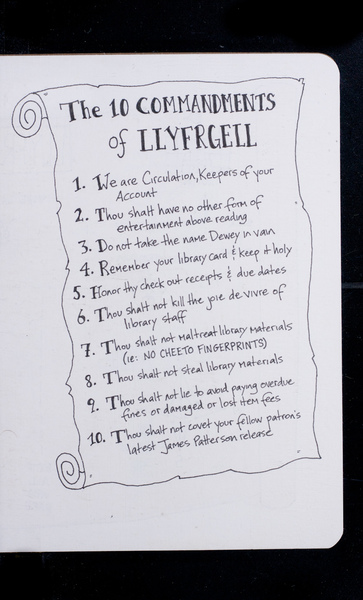 The 10 COMMANDMENTS
of LLYFRGELL
1. We are Circulation, Keepers of your
Account
2. Thou shalt have no other form of
entertainment above reading
3. Do not take the name Dewey in vain
4. Remember your library card & keep it holy
5. Honor thy check out receipts & due dates
6. Thou shalt not kill the joie de vivre of
library staff
7. Thou shalt not maltreat library materials
(ie: NO CHEETO FINGERPRINTS)
8. Thou shalt not steal library materials
9. Thou shalt not lie to avoid paying overdue
fines or damaged or lost item fees
10. Thou shalt not covet your fellow patron's
latest James Patterson release